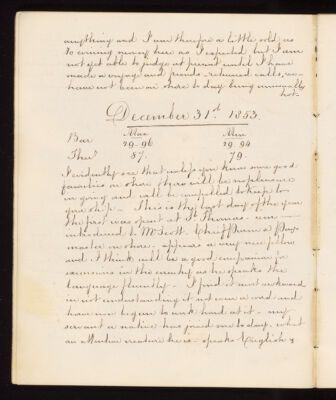 anything and I am therefore a little sold, as
to evening money here as I expected but I am
not yet able to judge at present until I have
made a voyage and friends - returned calls, we
have not been on shore to day being unusually
hot -
December 31st 1853.
Max Min
Bar 29.96 29.94
Ther 87. 79.
I evidently see that unless you know some good
families on shore there will be no pleasure
in going and will be compelled to keep to
your ship - This is the last day of the year
the first was spent at St Thomas - was
introduced to Mr Scott. Chief Pam's Pay
master on shore, appears a very nice fellow
and I think will be a good companion for
excursions in the country as he speaks the
language fluently - I find it most awkward
in not understanding it not even a word and
have now begun to work hard at it - my
servant a native has joined me to day. what
an attentive creature he is - speaks English &